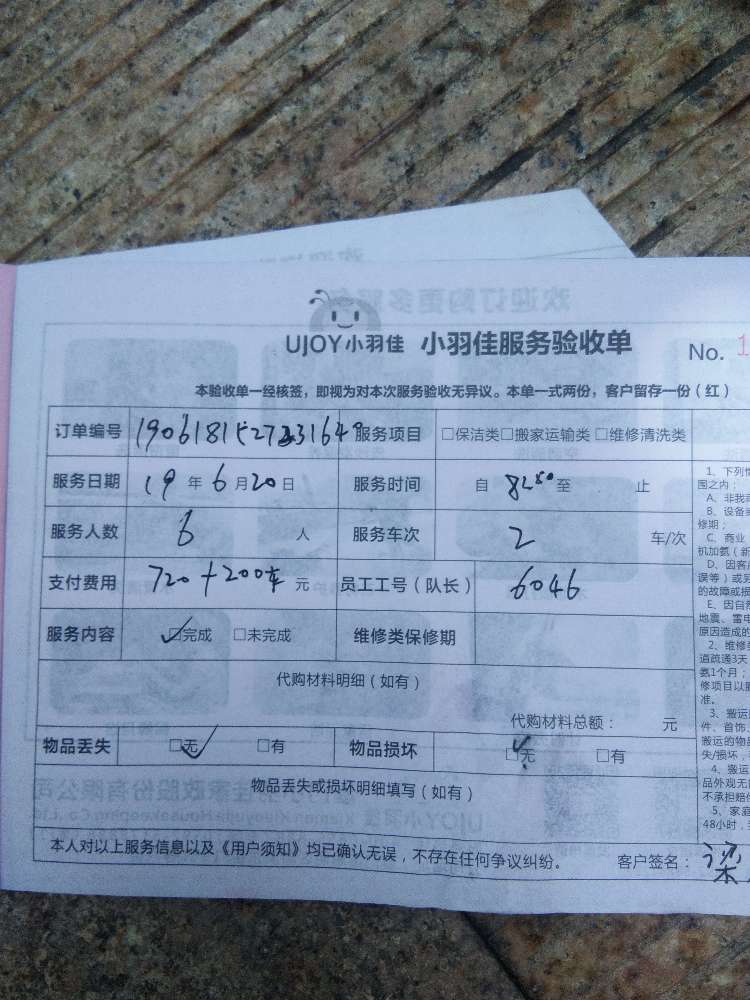 UJOY小羽佳 小羽佳服务验收单 No. 1
本验收单一经核签，即视为对本次服务验收无异议。本单一式两份，客户留存一份（红）
订单编号 服务项目 □保洁类□搬家运输类 □维修清洗类
服务日期 19 年 6 月 20 日 服务时间 自 至 止
服务人数 6 人 服务车次 2 车/次
支付费用 720+200车 元 员工工号（队长） 6046
服务内容 ☑完成 □未完成 维修类保修期
代购材料明细（如有）
代购材料总额： 元
物品丢失 ☑无 □有 物品损坏 ☑无 □有
物品丢失或损坏明细填写（如有）
本人对以上服务信息以及《用户须知》均已确认无误，不存在任何争议纠纷。 客户签名：梁
1、下列情
围之内：
A、非我
B、设备
修期；
C、商业
机加氨（新
D、因客户
误等）或
的故障或损
E、因自然
地震、雷电
原因造成的
2、维修
道疏通3天
氨1个月；
修项目以
准。
3、搬运
件、首饰、
搬运的物品
失/损坏，
4、搬运
品外观无
不承担赔偿
5、家庭
48小时，